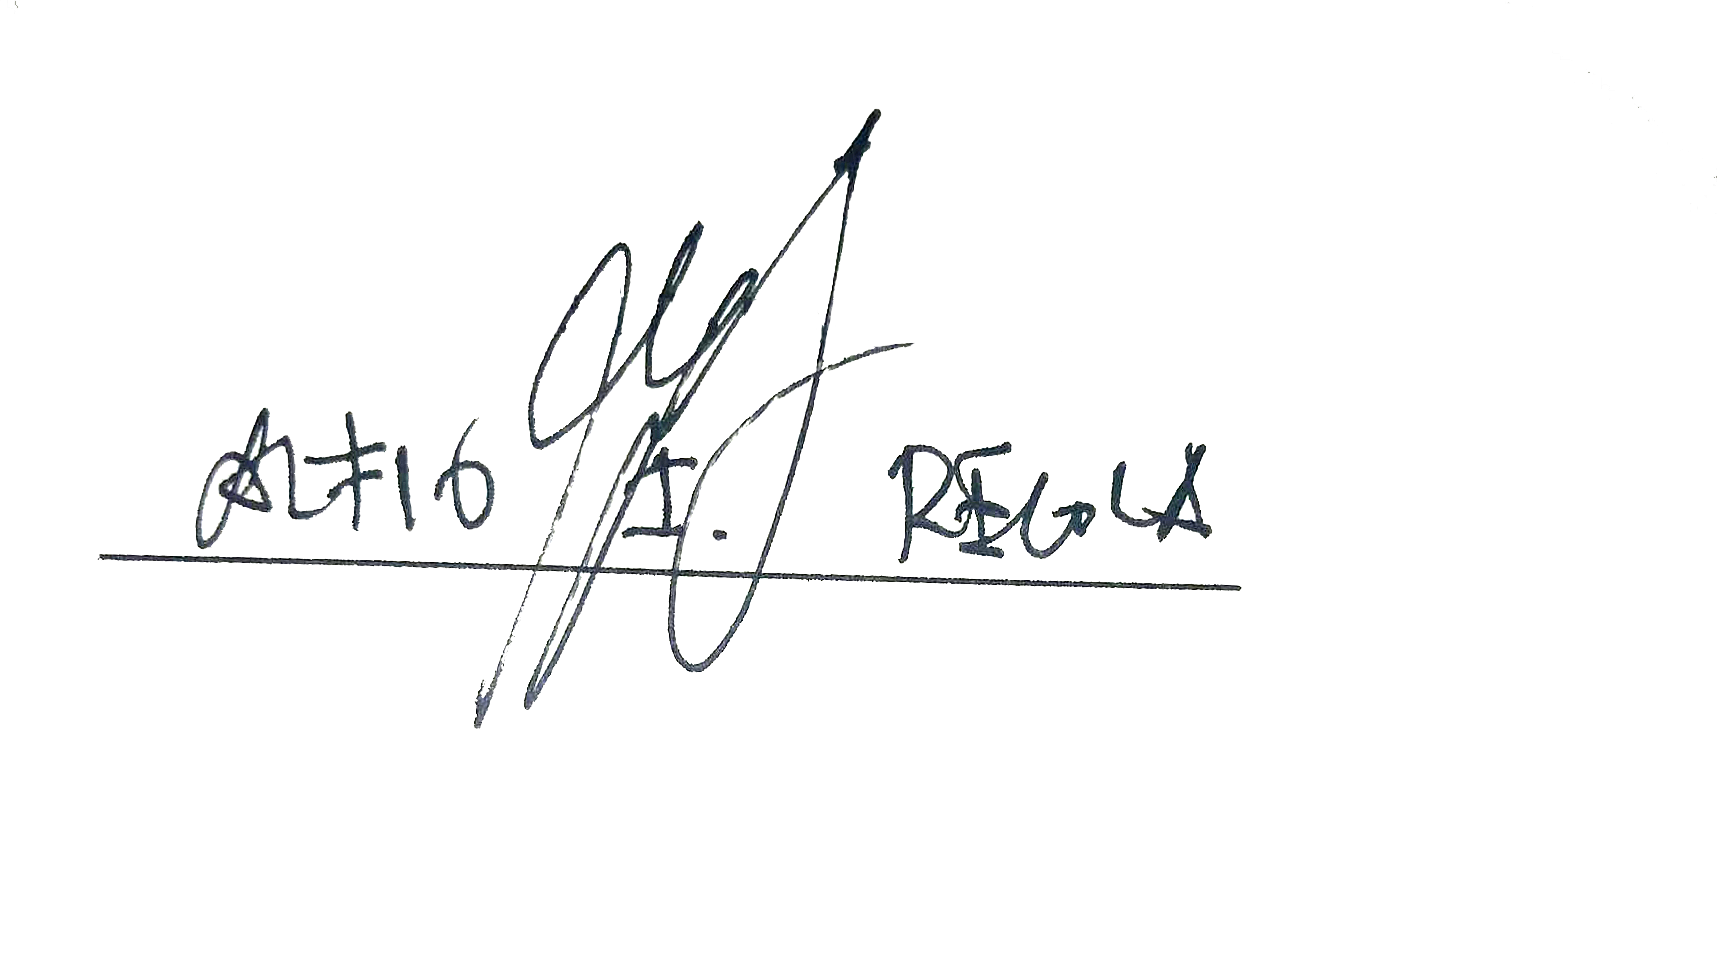 ALFIO I. REGLA